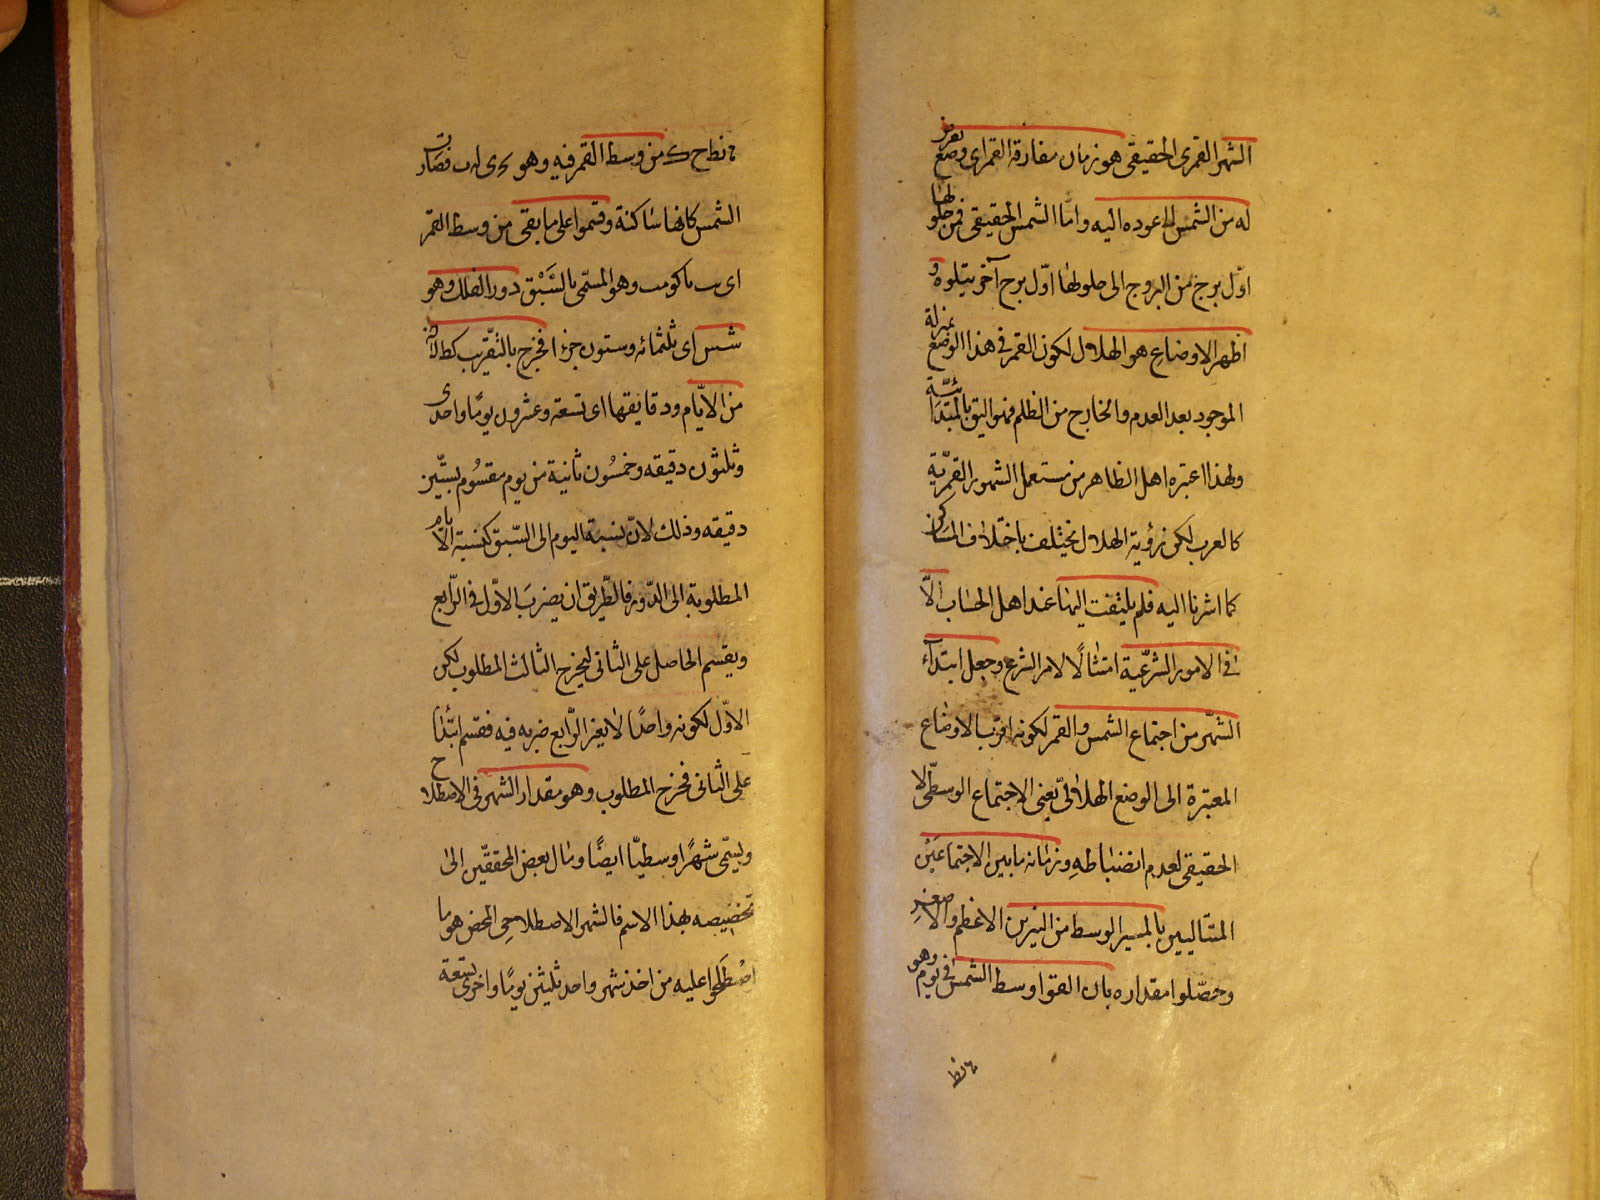 الشهر القمرى الحقيقى هو زمان مفارقة القمر اى وضع يعرض
له من الشمس الى عوده اليه وامّا الشمس الحقيقى فمن حلولها
اوّل برج من البروج الى حلولها اوّل برج آخر يتلوه و
اظهر الاوضاع هو الهلال لكون القمر فى هذا الوضع بمنزلة
الموجود بعد العدم والخارج من الظلم فهو اليق بالمبتدائية
ولهذا اعتبره اهل الظاهر من مستعمل الشهور القمريّة
كالعرب لكن رؤية الهلال تختلف باختلاف المساكن
كما اشرنا اليه فلم يلتفت اليها عند اهل الحساب الّا
فى الامور الشرعيّة امتثالًا لامر الشرع وجعل ابتدآء
الشهر من اجتماع الشمس والقمر لكونه اقرب الاوضاع
المعتبرة الى الوضع الهلالىّ يعنى الاجتماع الوسطى لا
الحقيقى لعدم انضباطه وزمانه ما بين الاجتماعَيْن
المتتاليين بالمسير الوسط من النيرين الاعظم والاصغر
وحصّلوا مقداره بان القوا وسط الشمس فى يوم وهو
ء نط
ء نط ح ك من وسط القمر فيه وهو يج ى له ب فصارت
الشمس كانها ساكنة وقسموا على ما بقى من وسط القمر
اى يب يا كو مب وهو المسمّى بالسَّبْق دور الفلك وهو
شس اى ثلثمائه وستون جزءا فخرج بالتقريب كط لا ن
من الايّام ودقايقها اى تسعة وعشرون يومًا واحدى
وثلثون دقيقه وخمسُون ثانية من يوم مقسُوم بستّين
دقيقه وذلك لانّ نسبة اليوم الى السّبق كنسبة الايام
المطلوبة الى الدّور فالطّريق ان يضربَ الاوّل فى الرّابع
ويقسم الحاصل على الثانى ليخرج الثالث المطلوب لكن
الاوّل لكونه واحدًا لا يغير الرّابع ضربه فيه فقسم ابتداءً
على الثانى فخرج المطلوب وهو مقدار الشهر فى الاصطلاح
ويسمّى شهرًا وسطيّا ايضًا ومال بعض المحققّين الىٰ
تخصيصه بهذا الاسم فالشهر الاصطلاحى المحض هو ما
اصْطَلحوا عليه من اخذ شهر واحد ثلثين يومًا واخرى تسعة